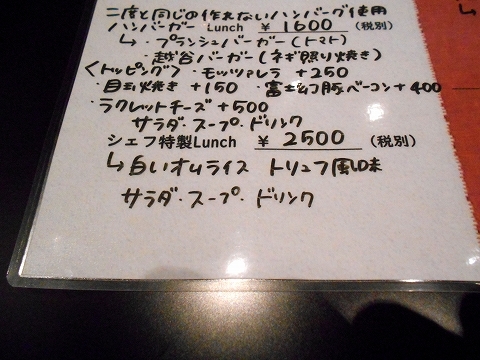 二度と同じの作れないハンバーグ使用
ハンバーガー Lunch ¥1600 (税別)
↳・ブランシュバーガー(トマト)
・越谷バーガー(ネギ照り焼き)
<トッピング> ・モッツァレラ +250
・目玉焼き +150 ・富士幻豚ベーコン+400
・ラクレットチーズ +500
サラダ・スープ・ドリンク
シェフ特製Lunch ¥2500 (税別)
↳白いオムライス トリュフ風味
サラダ・スープ・ドリンク